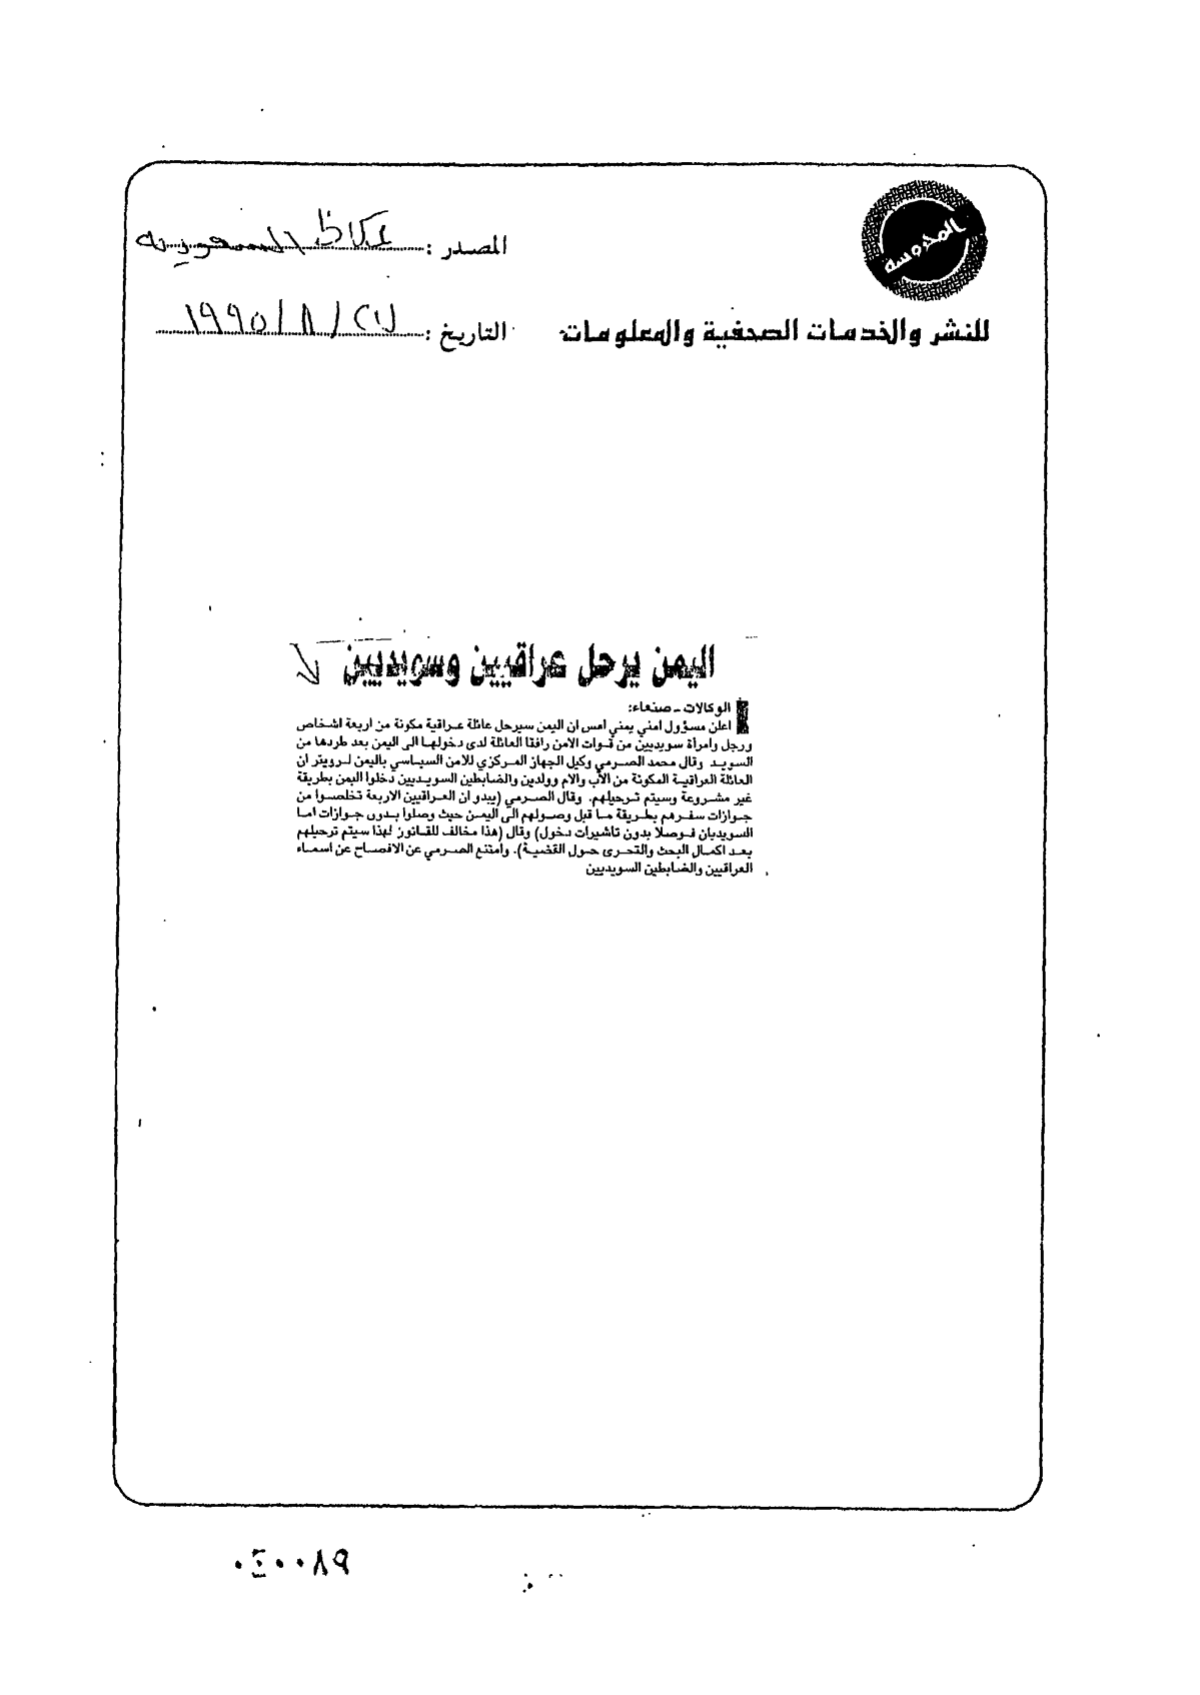 المحروسة
المصدر : عكاظ السعودية
للنشر والخدمات الصحفية والمعلومات
التاريخ : ١٩٩٥/٨/
اليمن يرحل عراقيين وسويديين
الوكالات ـ صنعاء:
اعلن مسؤول امني يمني امس ان اليمن سيرحل عائلة عراقية مكونة من اربعة اشخاص
ورجل وامرأة سويديين من قوات الامن رافقا العائلة لدى دخولها الى اليمن بعد طردها من
السويد وقال محمد الصرمي وكيل الجهاز المركزي للامن السياسي باليمن لرويتر ان
العائلة العراقية المكونة من الأب والام وولدين والضابطين السويديين دخلوا اليمن بطريقة
غير مشروعة وسيتم ترحيلهم. وقال الصرمي (يبدو ان العراقيين الاربعة تخلصوا من
جوازات سفرهم بطريقة ما قبل وصولهم الى اليمن حيث وصلوا بدون جوازات اما
السويديان فوصلا بدون تاشيرات دخول) وقال (هذا مخالف للقانون لهذا سيتم ترحيلهم
بعد اكمال البحث والتحرى حول القضية). وامتنع الصرمي عن الافصاح عن اسماء
العراقيين والضابطين السويديين
٠٤٠٠٨٩